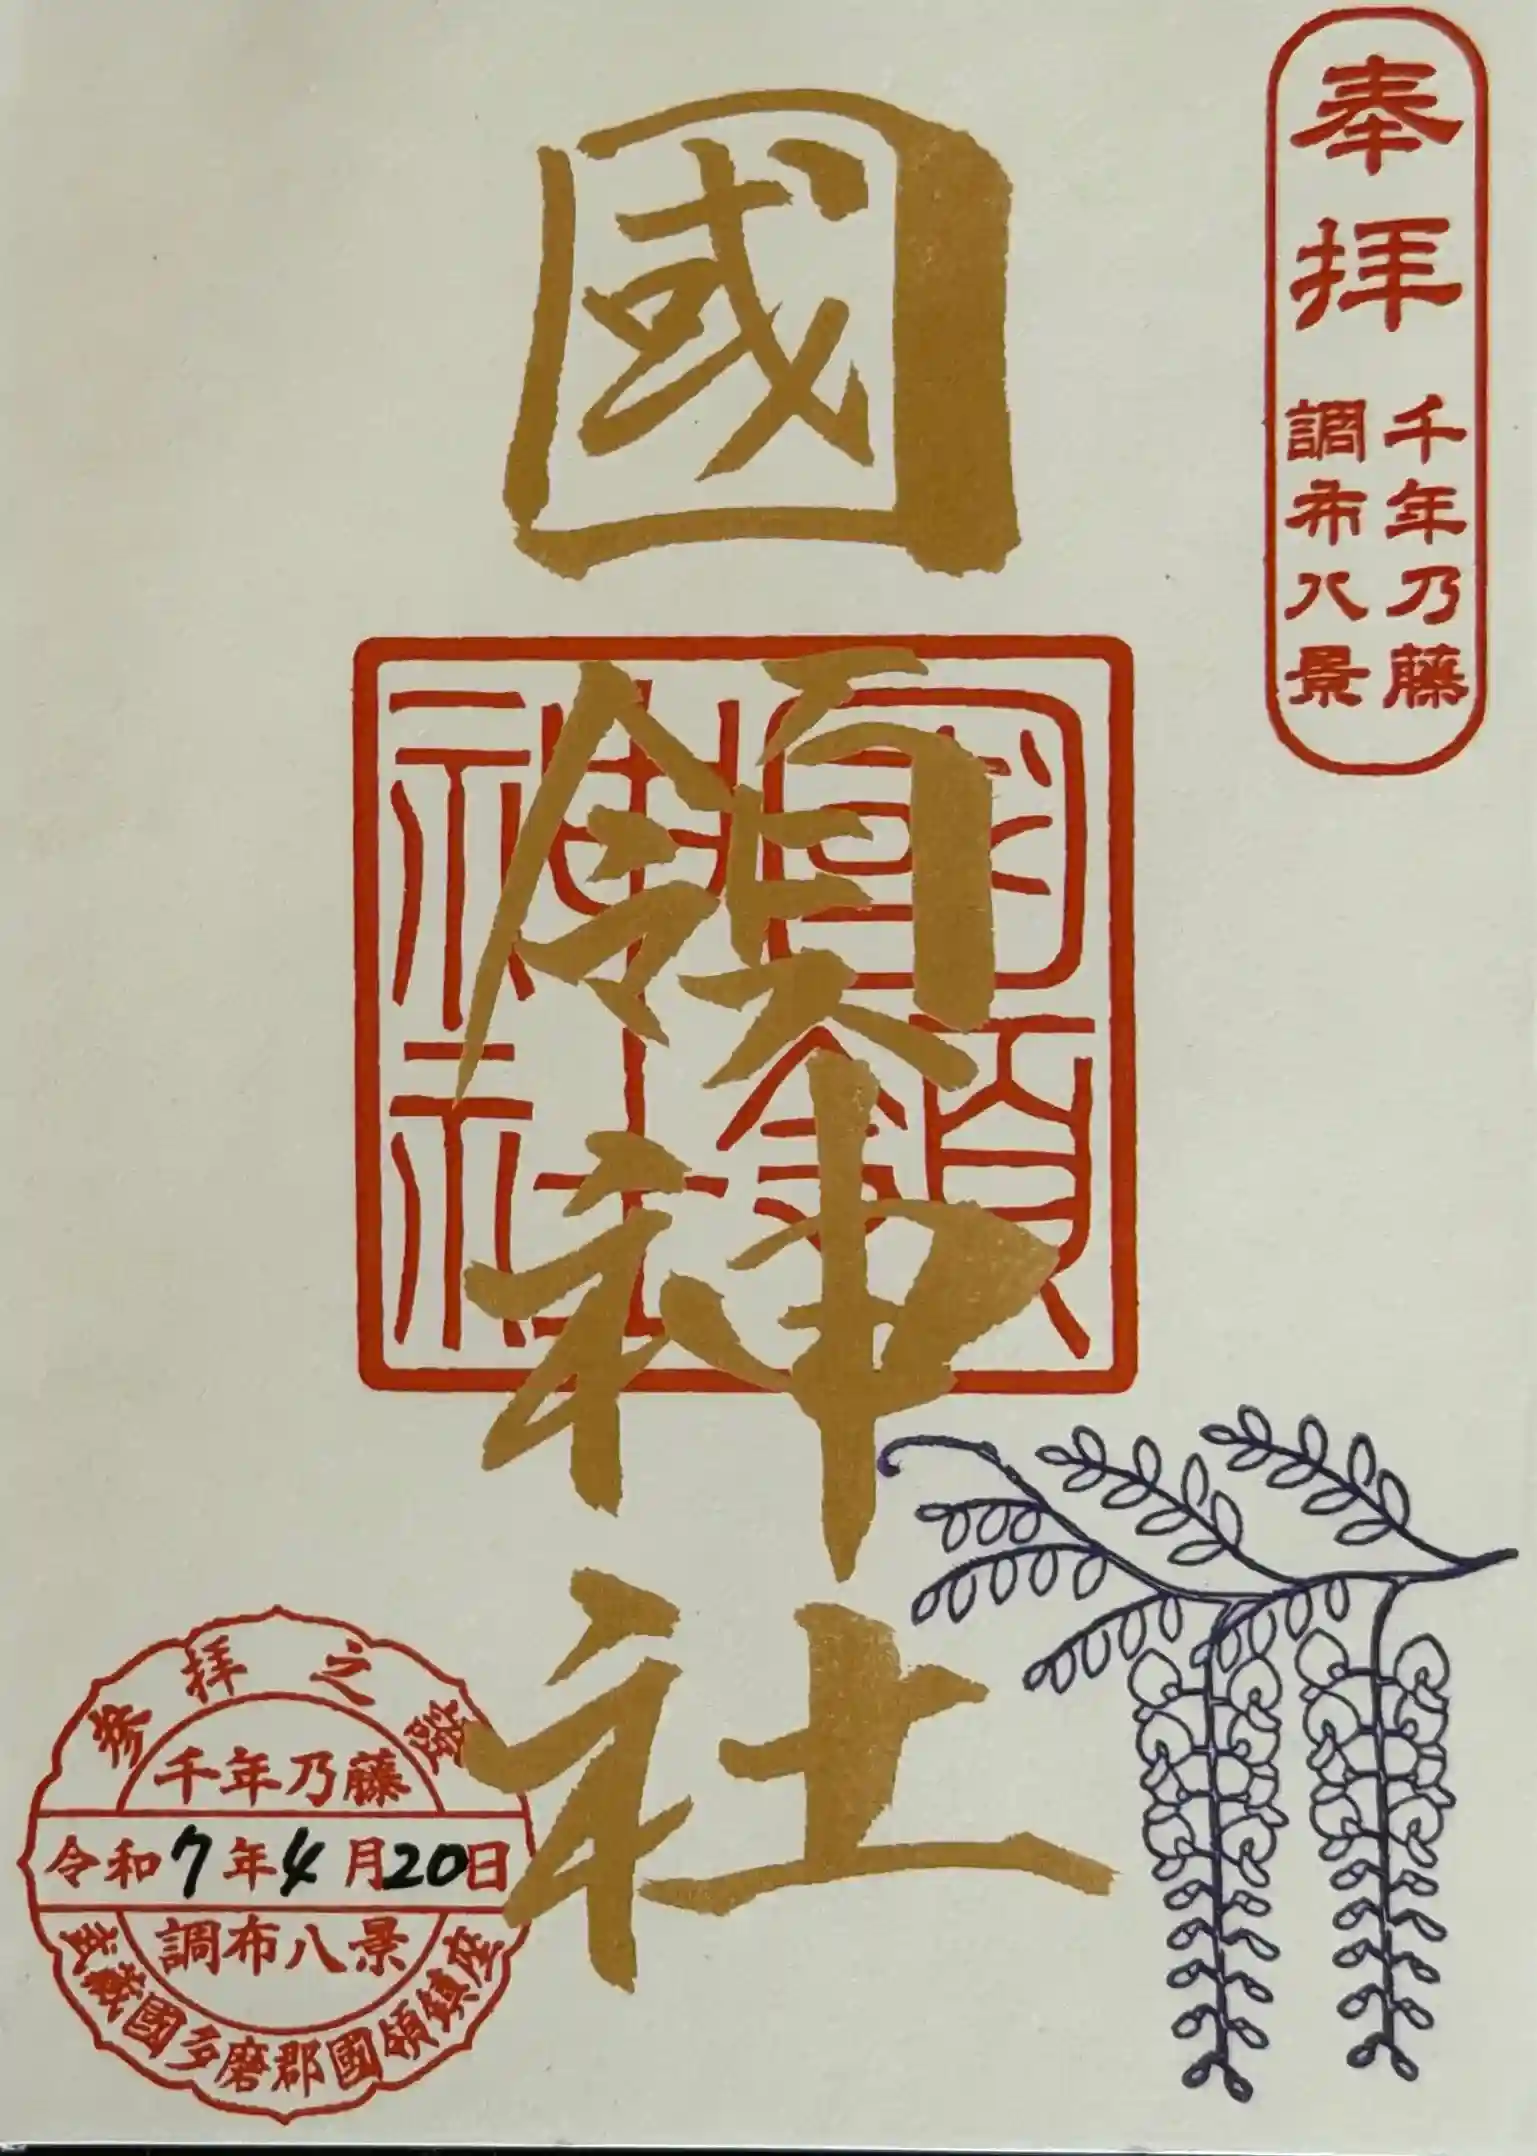 奉拝
千年乃藤
調布八景
國領神社
國領
神社
参拝之證
千年乃藤
令和7年4月20日
調布八景
武蔵國多磨郡國領鎮座